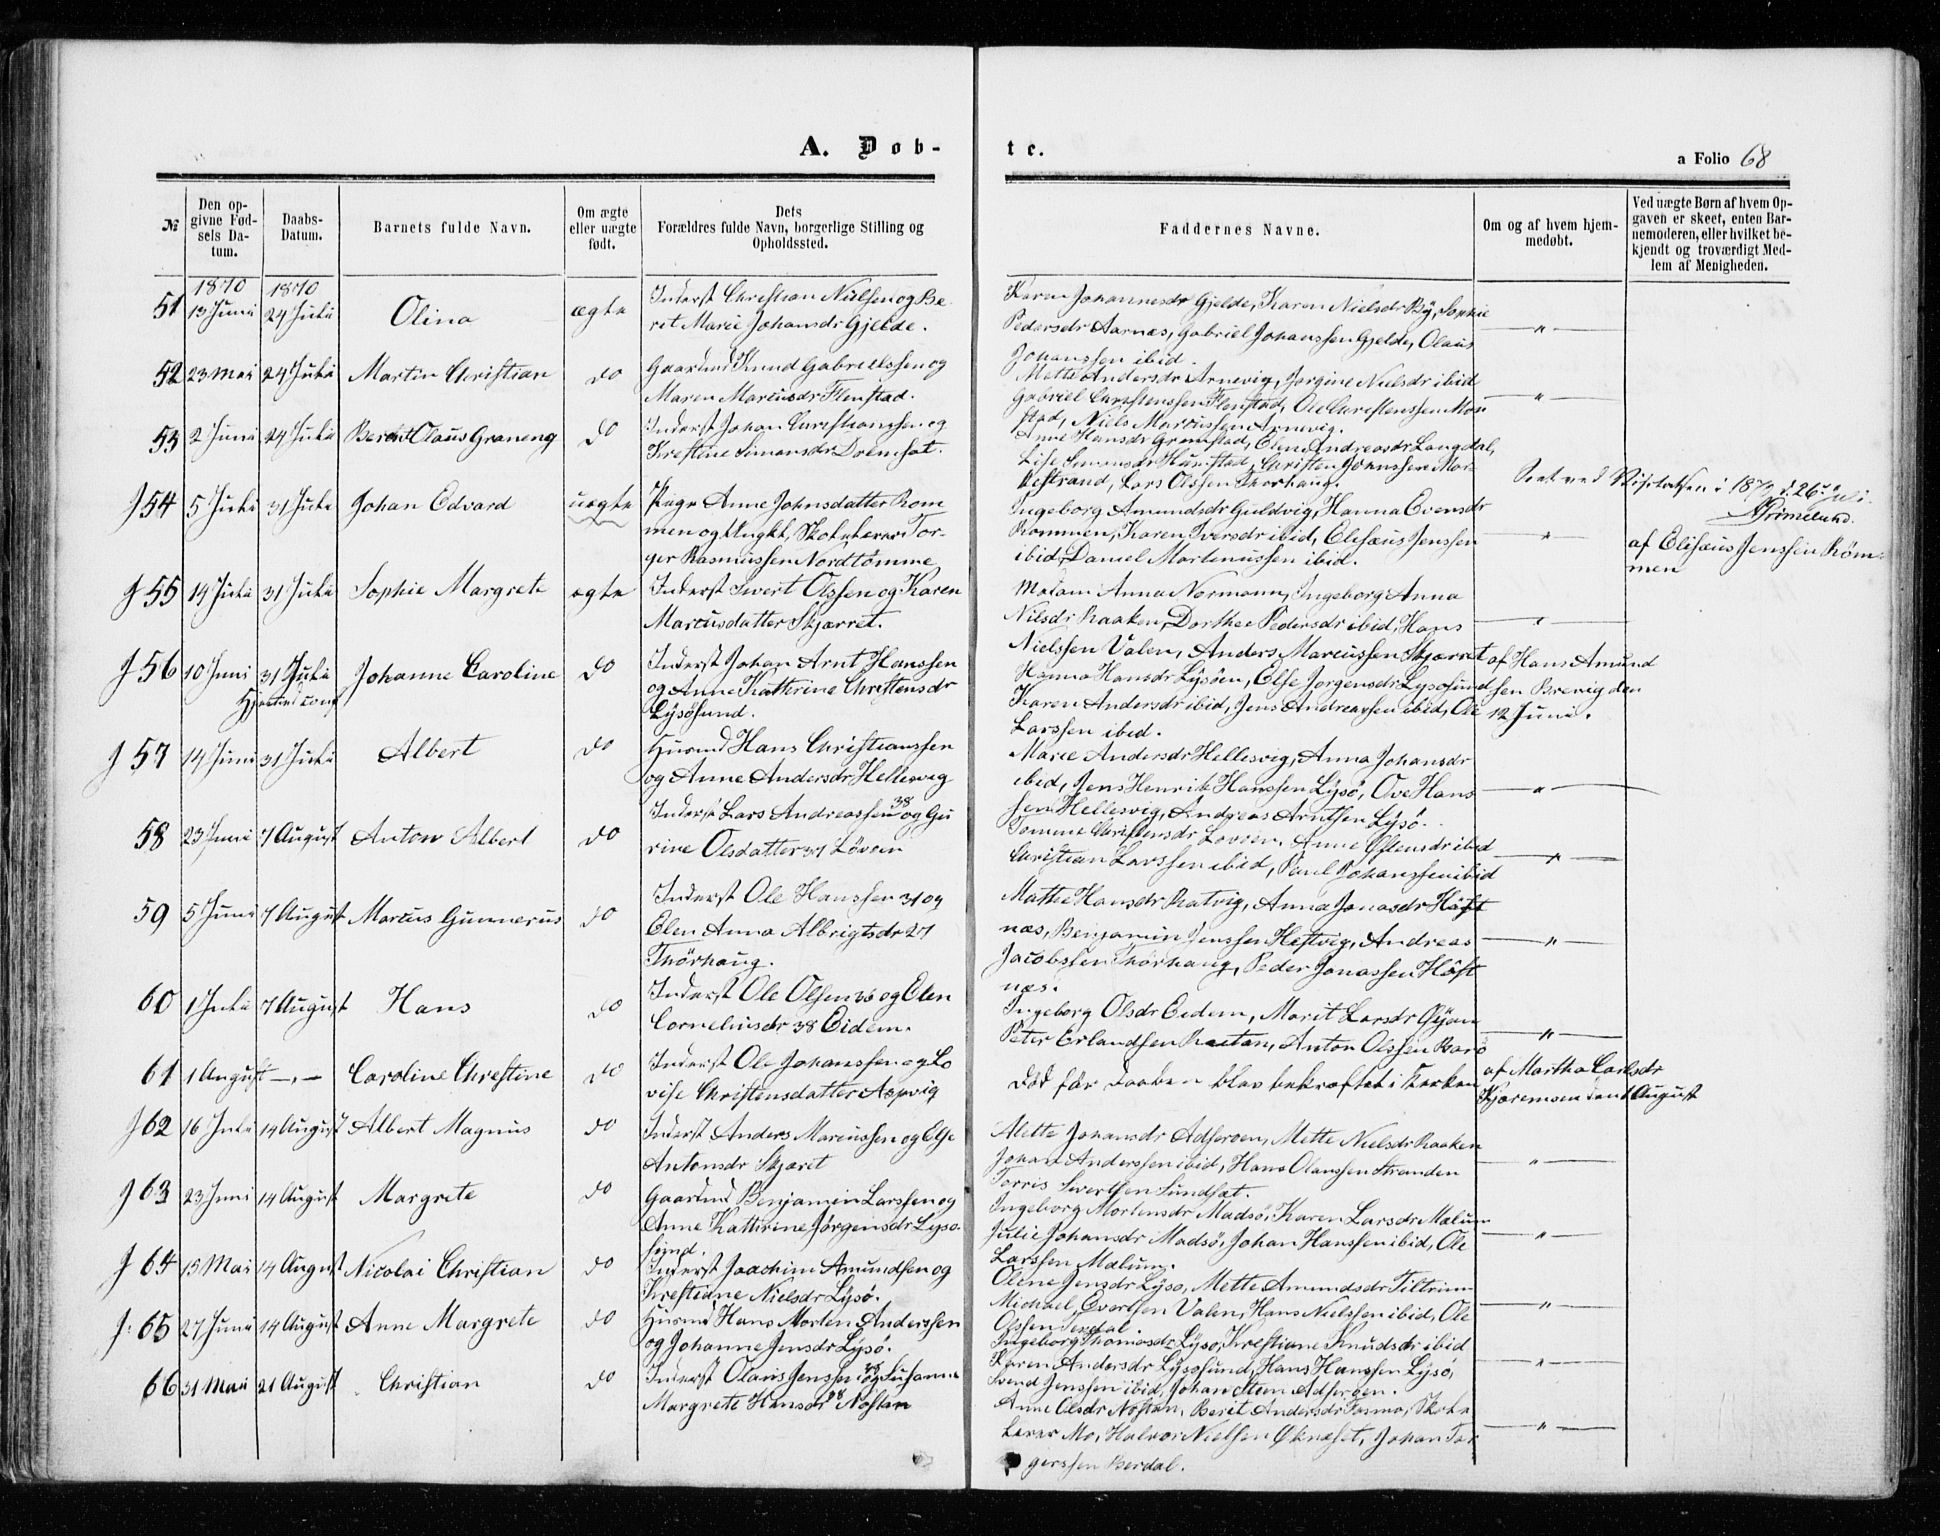 A. Døb-
te.
a Folio 68
№
Den opgivne Fødsels Datum.
Daabs-Datum.
Barnets fulde Navn.
Om ægte eller uægte født.
Dets Forældres fulde Navn, borgerlige Stilling og Opholdssted.
Faddernes Navne.
Om og af hvem hjemmedøbt.
Ved uægte Børn af hvem Opgaven er skeet, enten Barnemoderen, eller hvilket bekjendt og troværdigt Medlem af Menigheden.
1870 1870
51 13 Juni 24 Juli Olina ægte Inderst Christian Nielsen og Be-
ret Marie Johansdr Gjelde.
Karen Johannesdr Gjelde, Karen Nielsdr By, Sophie
Pedersdr Aarnæs, Gabriel Johanssen Gjelde, Olaus
Johanssen ibid. — " —
52 23 Mai 24 Juli Martin Christian do Gaardmd Knud Gabrielssen og
Maren Marcusdr Flenstad.
Mette Andersdr Arnevig, Jørgine Nielsdr ibid
Gabriel Christenssen Flenstad, Ole Christenssen Mon
stad, Niels Marcussen Arnevig. — " —
53 2 Juni 24 Juli Bernt Olaus Graneng do Inderst Johan Christianssen og
Kristine Simonsdr Dolmsat.
Anne Hansdr Gromstad, Elen Andreasdr Langdal,
Lise Simonsdr Humstad, Christen Johnssen Mor-
kestrand, Lars Olssen Thorhaug.
Seet ved Visitatsen i 1870 d. 26de Juli.
AGrimelund.
J 54 5 Juli 31 Juli Johan Edvard uægte Pige Anne Johnsdatter Rom
men og Ungkl, Skolelærer Tor-
ger Rasmussen Nordtømme
Ingeborg Amundsdr Guldvig, Hanna Evensdr
Rommen, Karen Iversdr ibid, Elisæus Jenssen
ibid, Daniel Mortenussen ibid. — " —
af Elisæus Jenssen Røm-
men
J 55 14 Juli 31 Juli Sophie Margrete ægte Inderst Sivert Olssen og Karen
Marcusdatter Skjærret.
Madam Anna Normann, Ingeborg Anna
Nilsdr Raaken, Dorthea Pedersdr ibid, Hans
Nielssen Valen, Anders Marcussen Skjærret — " —
J 56 10 Juni 31 Juli Johanne Caroline do Inderst Johan Arnt Hanssen
og Anne Katherine Christensdr
Lysøsund.
Hjemmed conf
Hanna Hansdr Lysøen, Else Jørgensdr Lysøsund
Karen Andersdr ibid, Jens Andreassen ibid, Ole
Larssen ibid.
af Hans Amund
sen Brevig den
12 Juni.
J 57 14 Juni 31 Juli Albert do Husmd Hans Christianssen
og Anne Andersdr Hellesvig
Marie Andersdr Hellesvig, Anna Johansdr
ibid, Jens Henrik Hanssen Lysø, Ove Hans
sen Hellesvig, Andreas Arntsen Lysø. — " —
58 23 Juni 7 August Anton Albert do Inderst Lars Andreassen 38 og Gu
rine Olsdatter 37 Løvøen
Tomine Christensdr Løvøen, Anne Østensdr ibid
Christian Larssen ibid, Paul Johanssen ibid — " —
59 5 Juni 7 August Marcus Gunnerus do Inderst Ole Hanssen 31 og
Elen Anna Albrigtsdr 27
Thørhaug.
Mattie Hansdr Ratvig, Anna Jonasdr Høft
næs, Benjamin Jenssen Hestvig, Andreas
Jacobssen Thørhaug, Peder Jonassen Høft
næs. — " —
60 1 Juli 7 August Hans do Inderst Ole Olsen 36 og Elen
Corneliusdr 38 Eidem.
Ingeborg Olsdr Eidem, Marit Larsdr Øyan
Peter Erlandsen Raetan, Anton Olssen Barø — " —
61 1 August — " — Caroline Chrestine do Inderst Ole Johanssen og Lo
vise Christensdatter Aspvig
død før Daaben blev bekræftet i Kirken
af Martha Carlsdr
Kjøremsen den 1 August
J 62 16 Juli 14 August Albert Magnus do Inderst Anders Marcussen og Else
Antonsdr Skjæret
Alette Johansdr Adseroen, Mette Nielsdr Raaken
Johan Anderssen ibid, Hans Olaussen Stranden
Torris Sivertsen Sundsat. — " —
J 63 23 Juni 14 August Margrete do Gaardmd Benjamin Larssen og
Anne Kathrine Jørgensdr Lysø-
sund.
Ingeborg Mortensdr Madsø, Karen Larsdr Mælum
Julie Johansdr Madsø, Johan Hanssen ibid, Ole
Larssen Mælum. — " —
J 64 15 Mai 14 August Nicolai Christian do Inderst Joachim Amundsen og
Krestiane Nielsdr Lysø.
Olene Jensdr Lysø, Mette Amundsdr Tiltrum
Michael Evertsen Valen, Hans Nielssen ibid, Ole
Olssen — " —
J. 65 27 Juni 14 August Anne Margrete do Husmd Hans Morten Anderssen
og Johanne Jensdr Lysø.
Ingeborg Thomasdr Lysø, Krestiane Knudsdr ibid
Karen Andersdr Lysøsund, Hans Hanssen Lysø,
Svend Jenssen ibid, Johan Stem Adseroen. — " —
66 31 Mai 21 August Christian do Inderst Olaus Jenssen 38 og Susanne
Margrete Hansdr 28 Nøstan
Anne Olsdr Nøstan, Berit Andersdr Rosmo, Skole
lærer Mo, Halvor Nielsen Øknæset, Johan Tor
gerssen Berdal. — " —